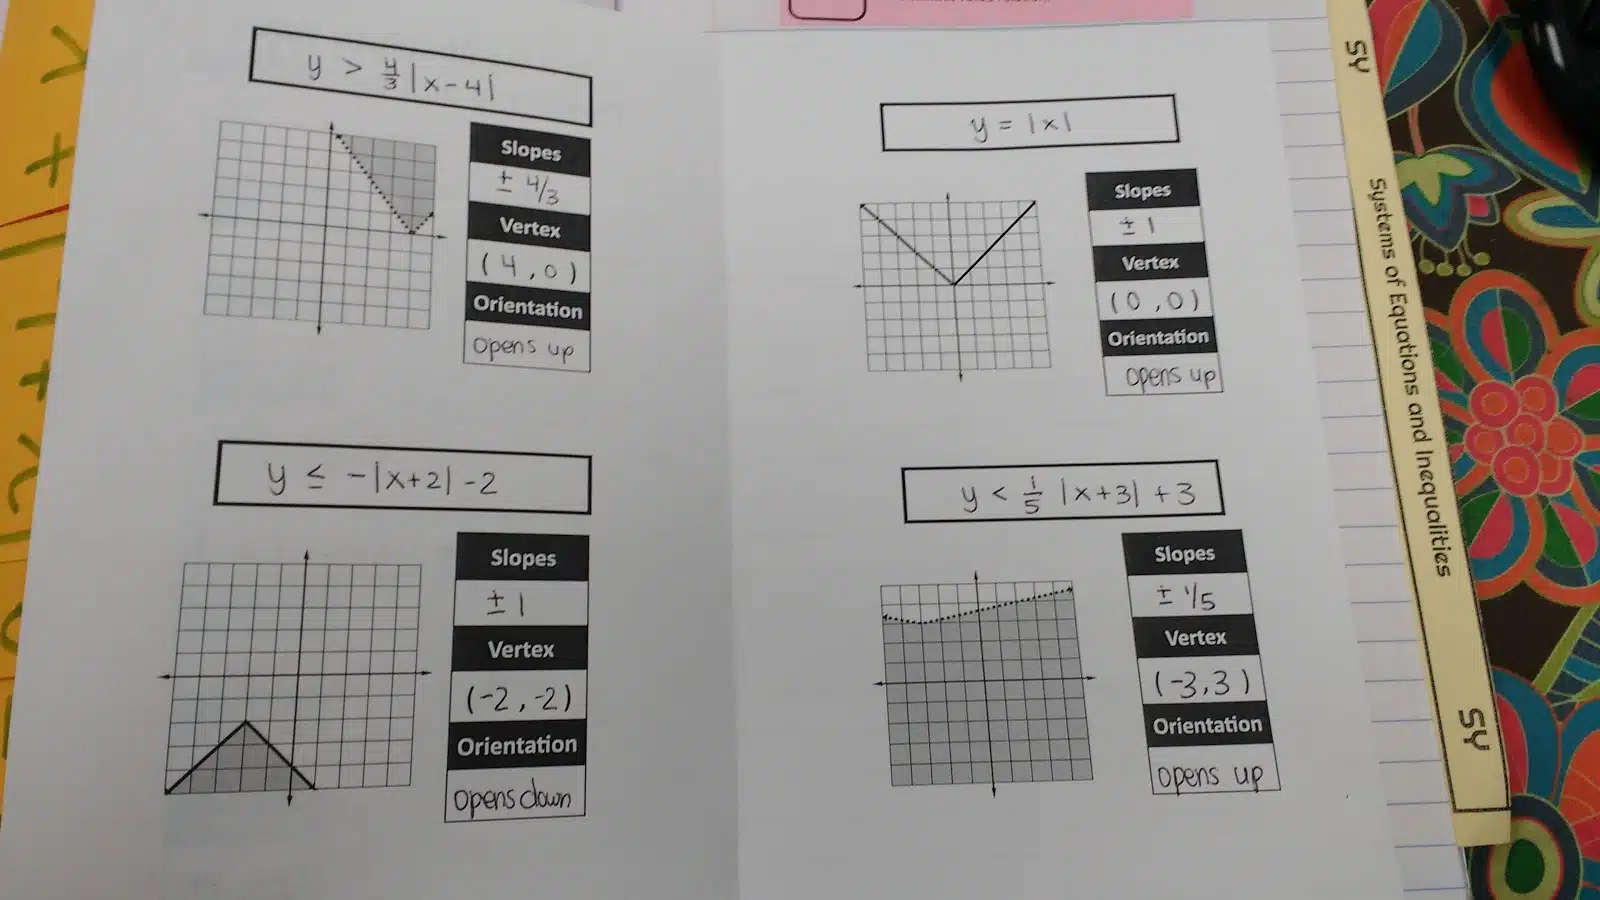 y > 4/3 |x-4|
Slopes
± 4/3
Vertex
(4,0)
Orientation
opens up
y ≤ -|x+2| -2
Slopes
± 1
Vertex
(-2,-2)
Orientation
opens down
y = |x|
Slopes
± 1
Vertex
(0,0)
Orientation
opens up
y < 1/5 |x+3| +3
Slopes
± 1/5
Vertex
(-3,3)
Orientation
opens up
5Y
Systems of Equations and Inequalities
5Y